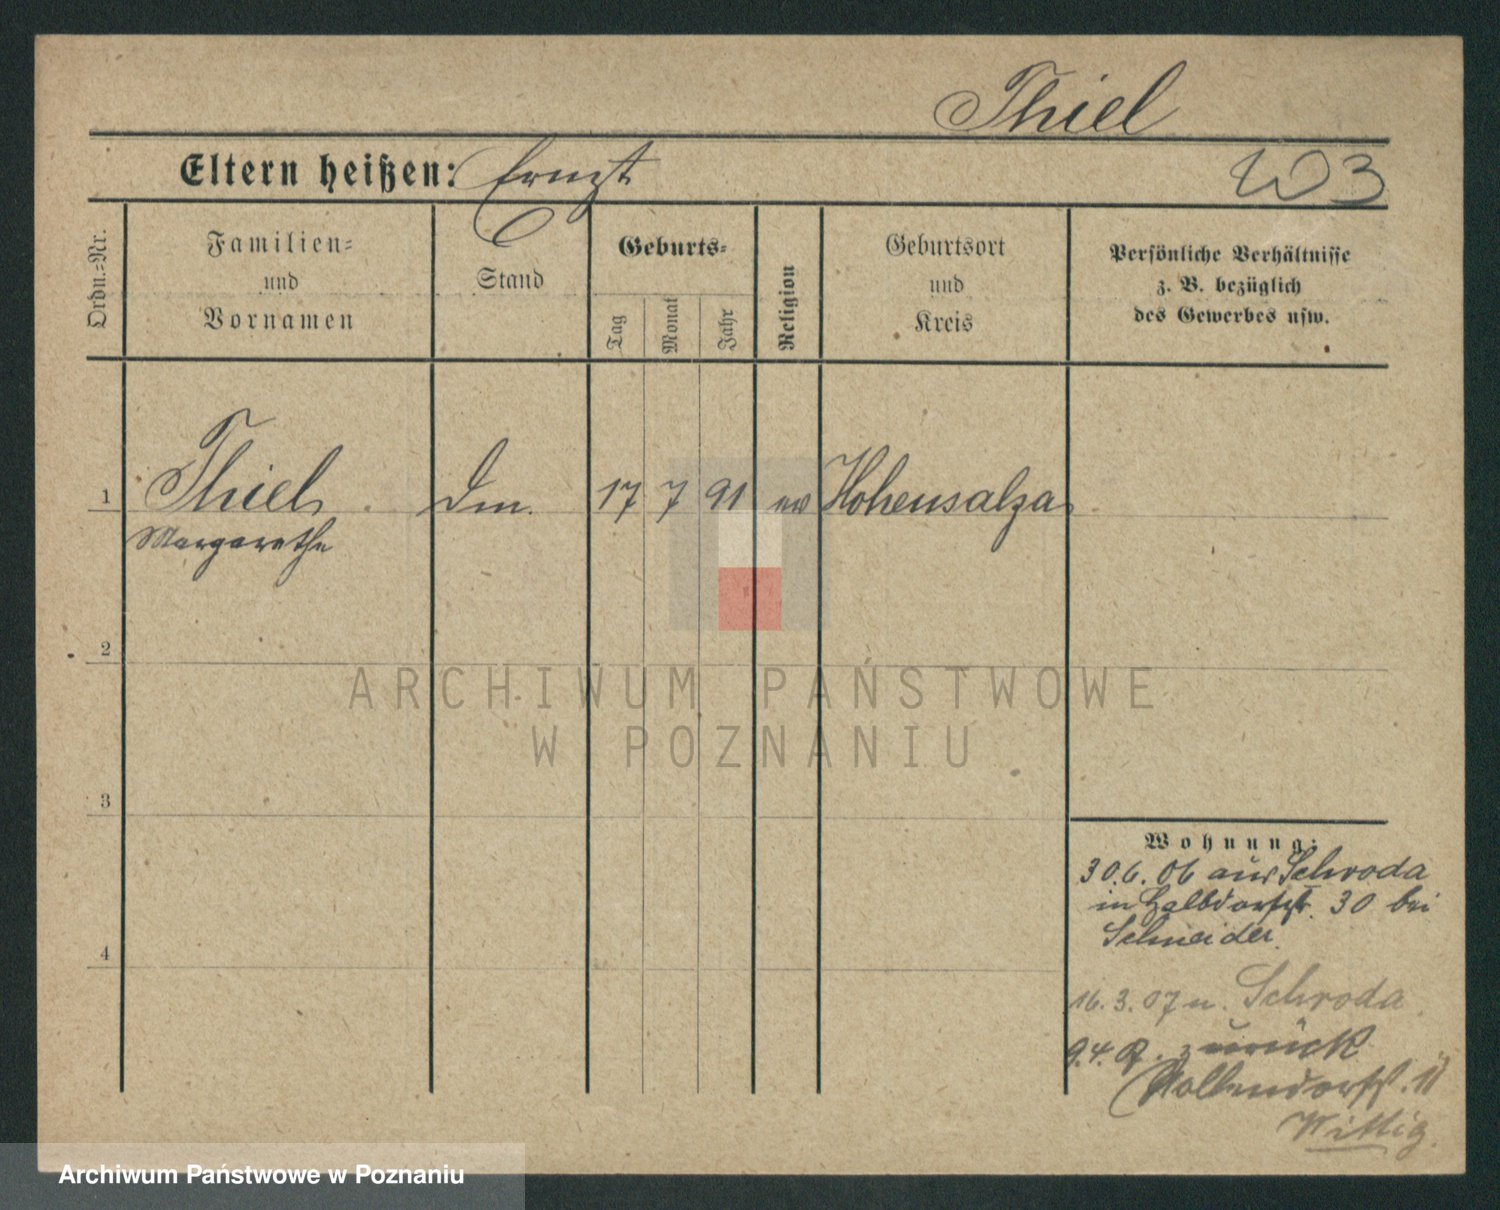 Thiel
Eltern heißen: Ernst
W3
Ordn.=Nr.
Familien=
und
Vornamen
Stand
Geburts=
Tag
Monat
Jahr
Religion
Geburtsort
und
Kreis
Persönliche Verhältnisse
z. B. bezüglich
des Gewerbes usw.
1 Thiel Dm. 17 7 91 ev Hohensalza
Margarethe
2
3
4
ARCHIWUM PAŃSTWOWE
W POZNANIU
Wohnung:
30.6.06 aus Schroda
in Halbdorfstr. 30 bei
Schneider.
16.3.07 n. Schroda
9.4. zurück
11
Wittig.
Archiwum Państwowe w Poznaniu